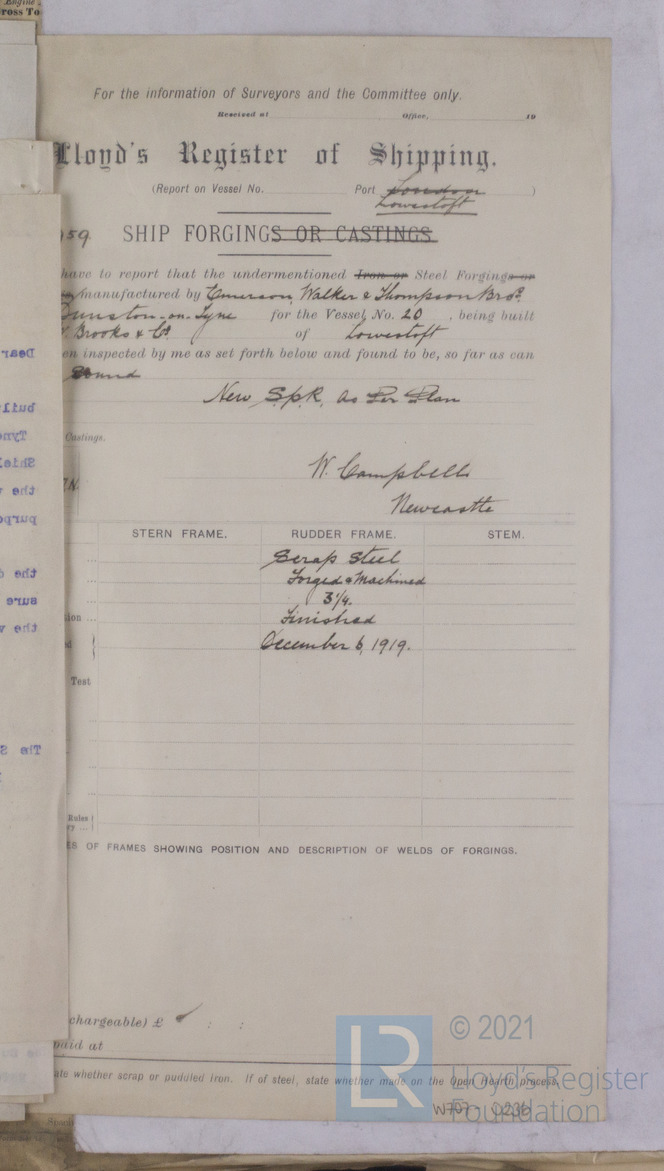 Engine
ross To
For the information of Surveyors and the Committee only.
Received at Office, 19
Lloyd's Register of Shipping.
(Report on Vessel No. Port London )
Lowestoft
959 SHIP FORGINGS OR CASTINGS.
have to report that the undermentioned Iron or Steel Forgings or
manufactured by Emerson, Walker & Thompson Bros.
Dunston-on-Tyne for the Vessel, No. 20, being built
Brooks & Co. of Lowestoft
en inspected by me as set forth below and found to be, so far as can
Sound
New S.p.R. as Per Plan
Castings.
W. Campbell
Newcastle
STERN FRAME. RUDDER FRAME. STEM.
Scrap Steel
Forged & Machined
3 1/4.
tion ... Finished
December 6, 1919.
Test
Rules
ES OF FRAMES SHOWING POSITION AND DESCRIPTION OF WELDS OF FORGINGS.
chargeable) £ : :
paid at
ate whether scrap or puddled iron. If of steel, state whether made on the Open Hearth process.
W707-0236
LR
© 2021
Lloyd's Register
Foundation
Dear
built
Tyne
Shiel
the v
purpo
the
sure
the v
The S